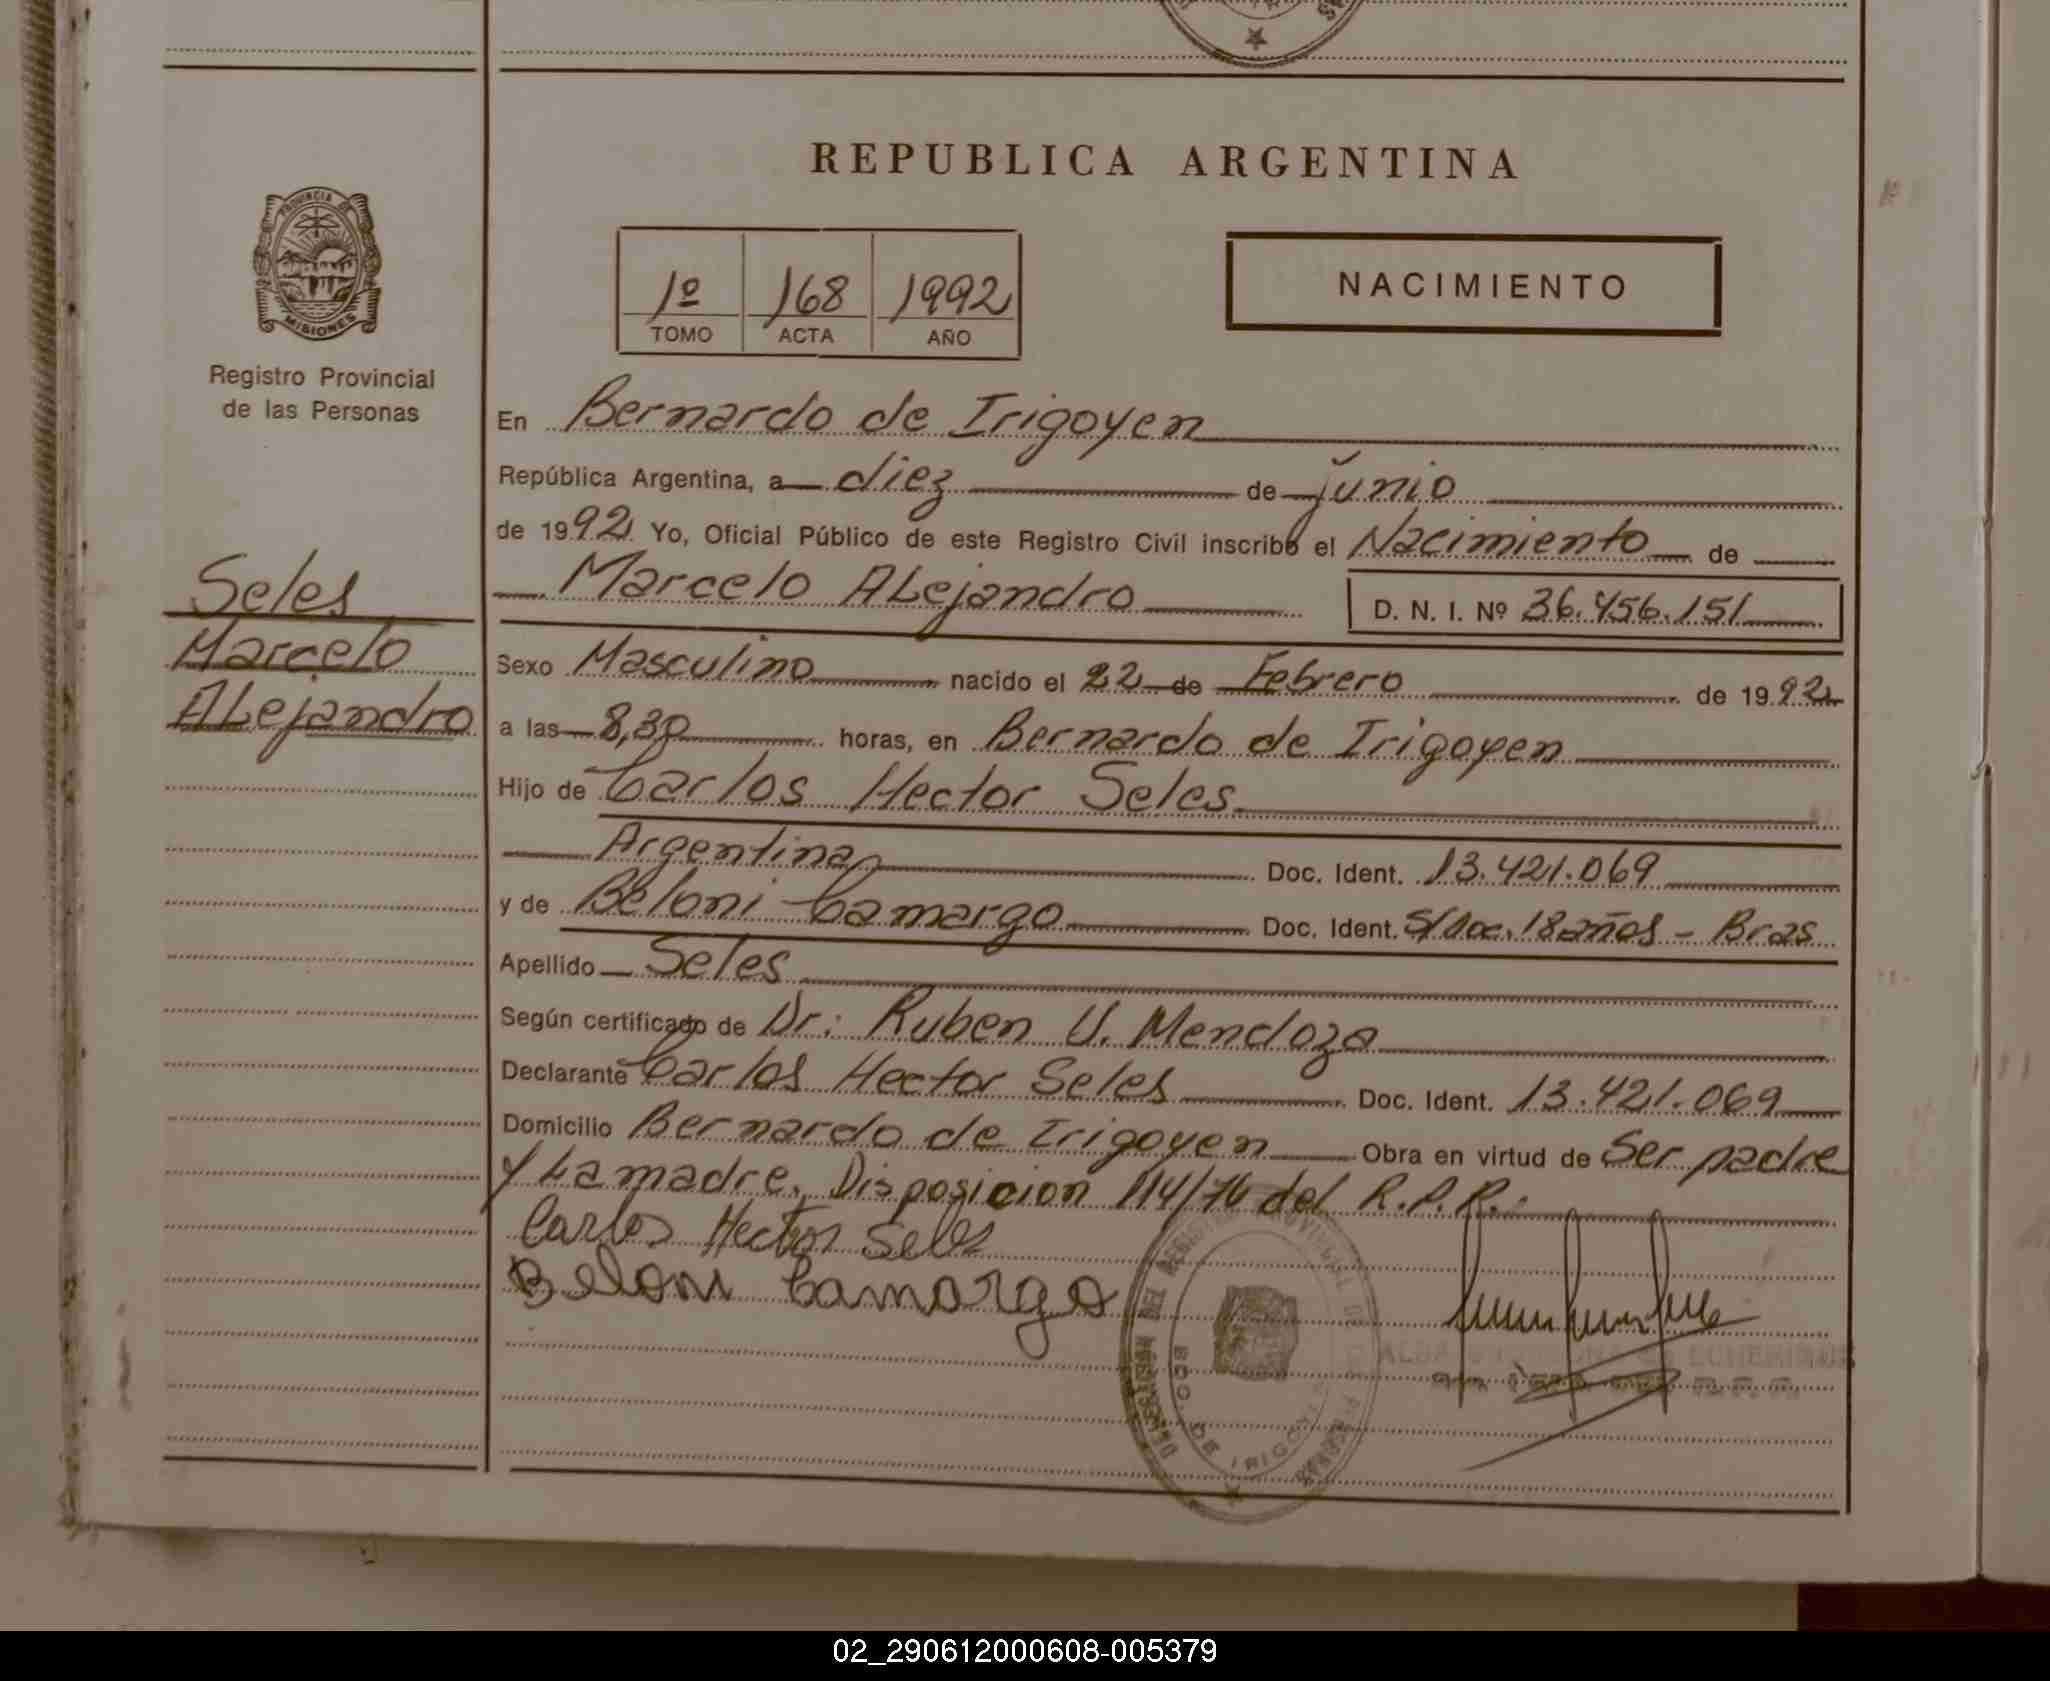 REPUBLICA ARGENTINA
PROVINCIA DE
MISIONES
Registro Provincial
de las Personas
1º 168 1992
TOMO ACTA AÑO
NACIMIENTO
Seles
Marcelo
Alejandro
En Bernardo de Irigoyen
República Argentina, a diez de junio
de 1992 Yo, Oficial Público de este Registro Civil inscribo el Nacimiento de
Marcelo Alejandro D. N. I. Nº 36.456.151
Sexo Masculino nacido el 22 de Febrero de 1992
a las 8,30 horas, en Bernardo de Irigoyen
Hijo de Carlos Hector Seles
Argentina Doc. Ident. 13.421.069
y de Beloni Camargo Doc. Ident. S/Doc. 18 años - Bras
Apellido Seles
Según certificado de Dr: Ruben U. Mendoza
Declarante Carlos Hector Seles Doc. Ident. 13.421.069
Domicilio Bernardo de Irigoyen Obra en virtud de Ser padre
y La madre. Disposicion 114/76 del R.P.R.
Carlos Hector Seles
Beloni Camargo
BDO. DE IRIGOYEN
02_290612000608-005379